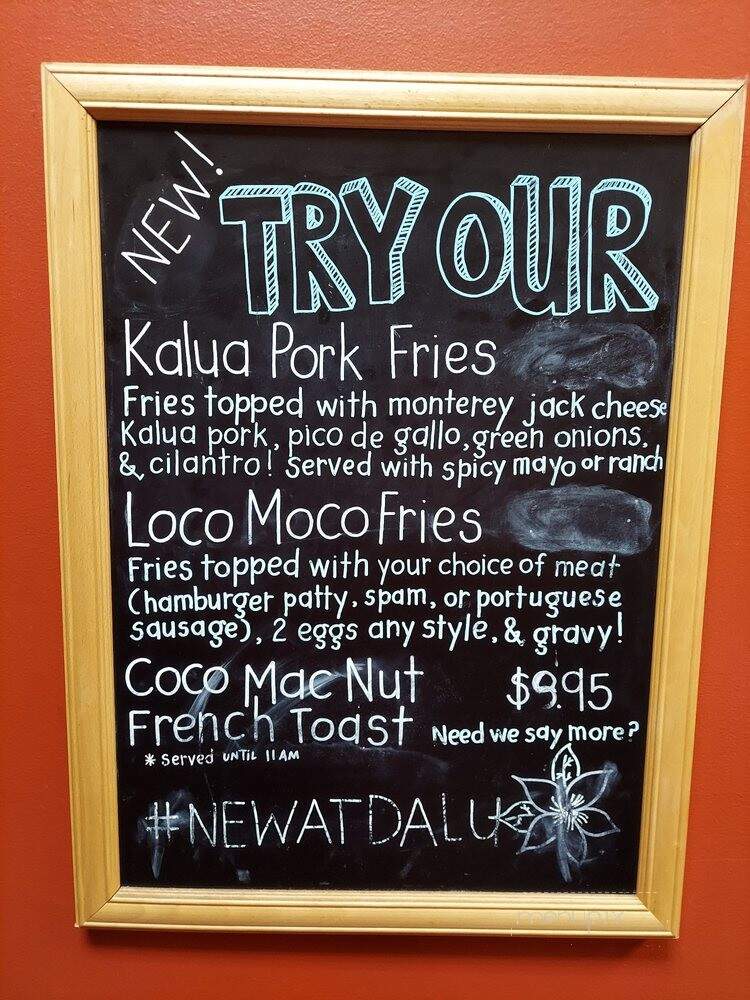 NEW!
TRY OUR
Kalua Pork Fries
Fries topped with monterey jack cheese
Kalua pork, pico de gallo, green onions,
& cilantro! Served with spicy mayo or ranch
Loco Moco Fries
Fries topped with your choice of meat
(hamburger patty, spam, or portuguese
sausage), 2 eggs any style, & gravy!
Coco Mac Nut $9.95
French Toast Need we say more?
* Served UNTIL 11AM
#NEWATDALUK
menupix